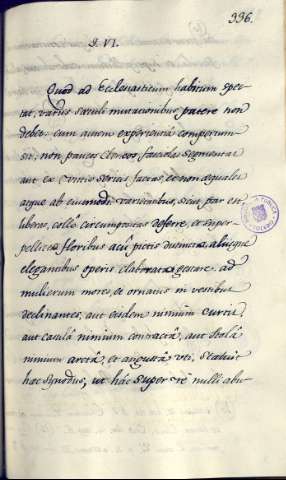 336.
§. VI.
Quod ad Ecclesiasticum habitum spec-
tat, variis sæculi mutationibus patere non
debet: cum autem experientia compertum
sit, non paucos Clericos, fasciolas segmentat
aut ex vitio sericas factas, et non æquales
atque ab ejusmodi varietatibus, sicut par est
liberas, collo circumpositas deferre, et super-
pellicea floribus acu pictis distincta, aliisque
elegantibus operis elaborata gestare, ad
mulierum mores, et ornatus in vestibus
declinantes, aut eisdem nimium curtis,
aut casula nimium contracta, aut stola
nimium arcta, et angusta uti, Statuit
hæc Synodus, ut hac super re nulli abu